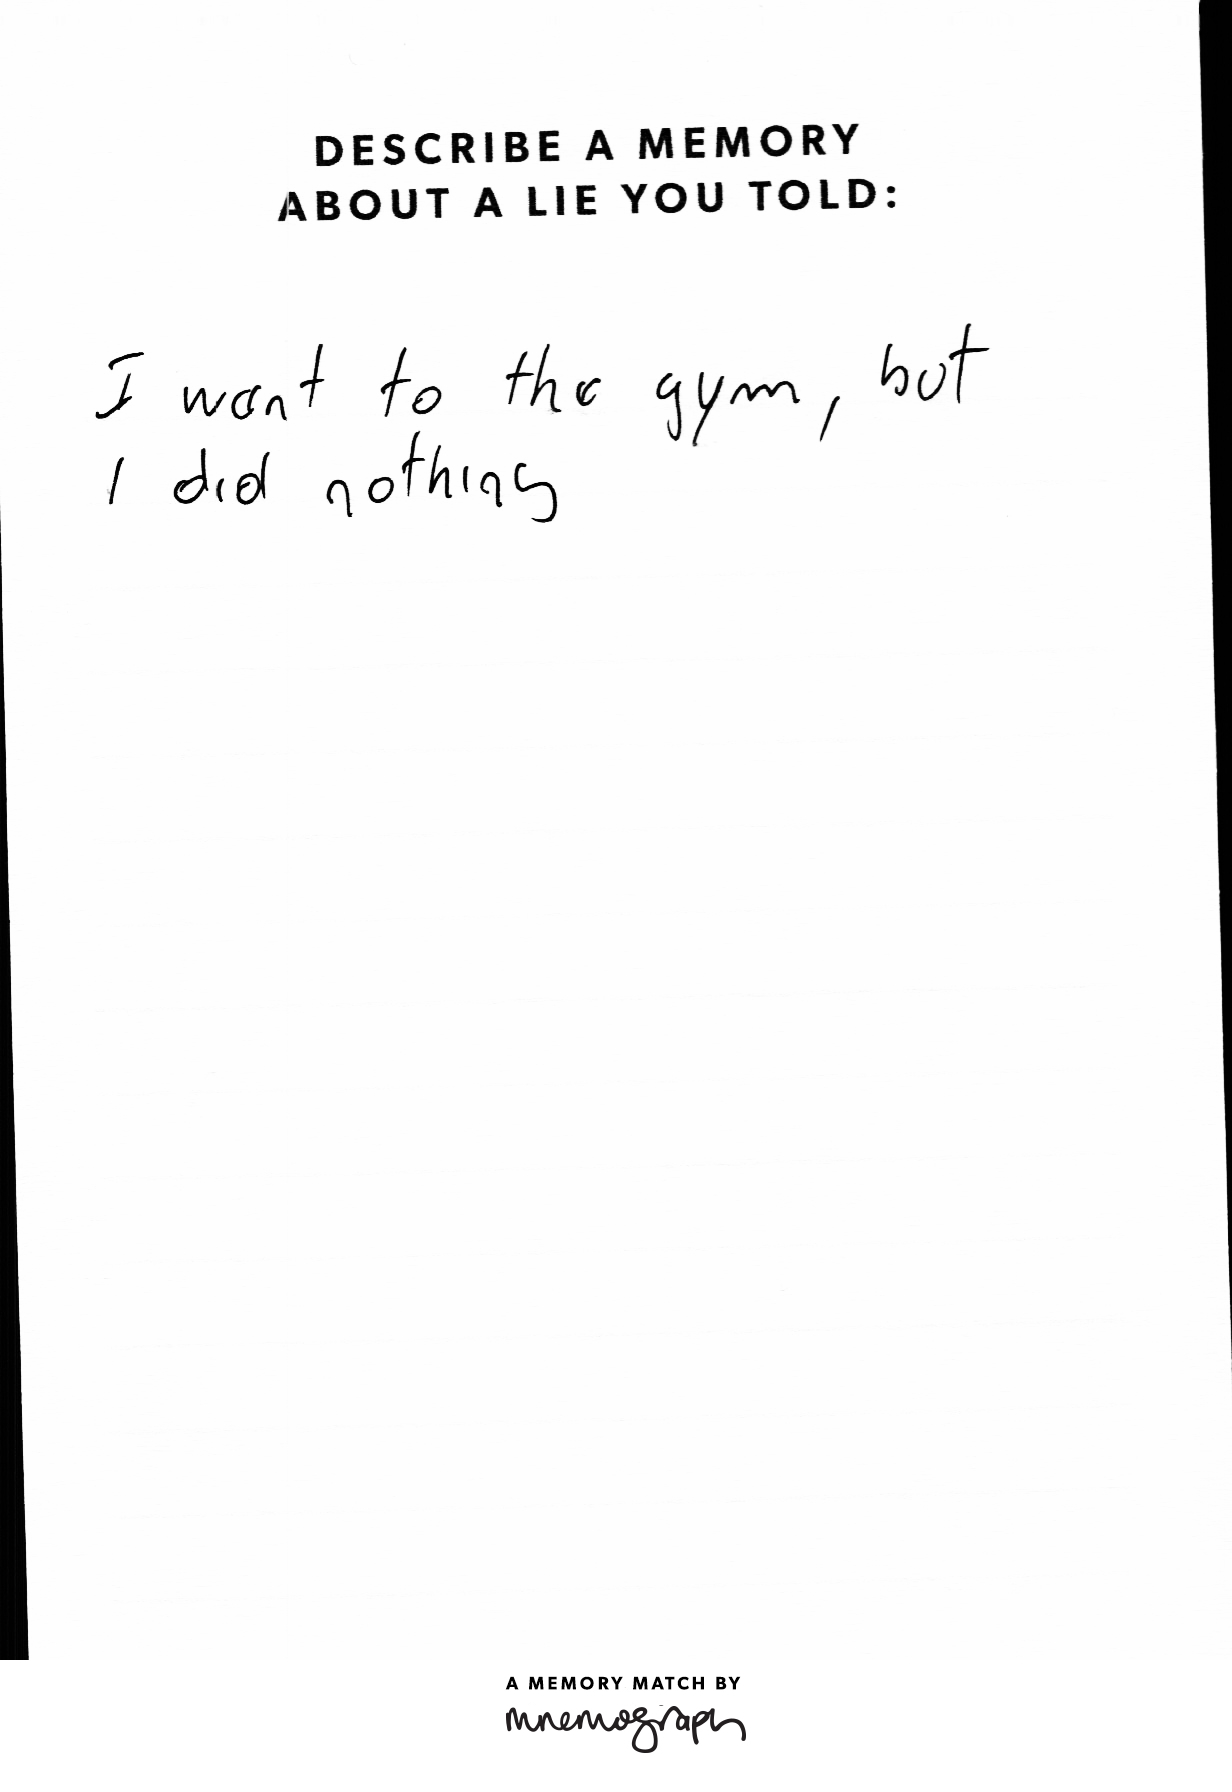 DESCRIBE A MEMORY
ABOUT A LIE YOU TOLD:
I went to the gym, but
I did nothing
A MEMORY MATCH BY
mnemograph